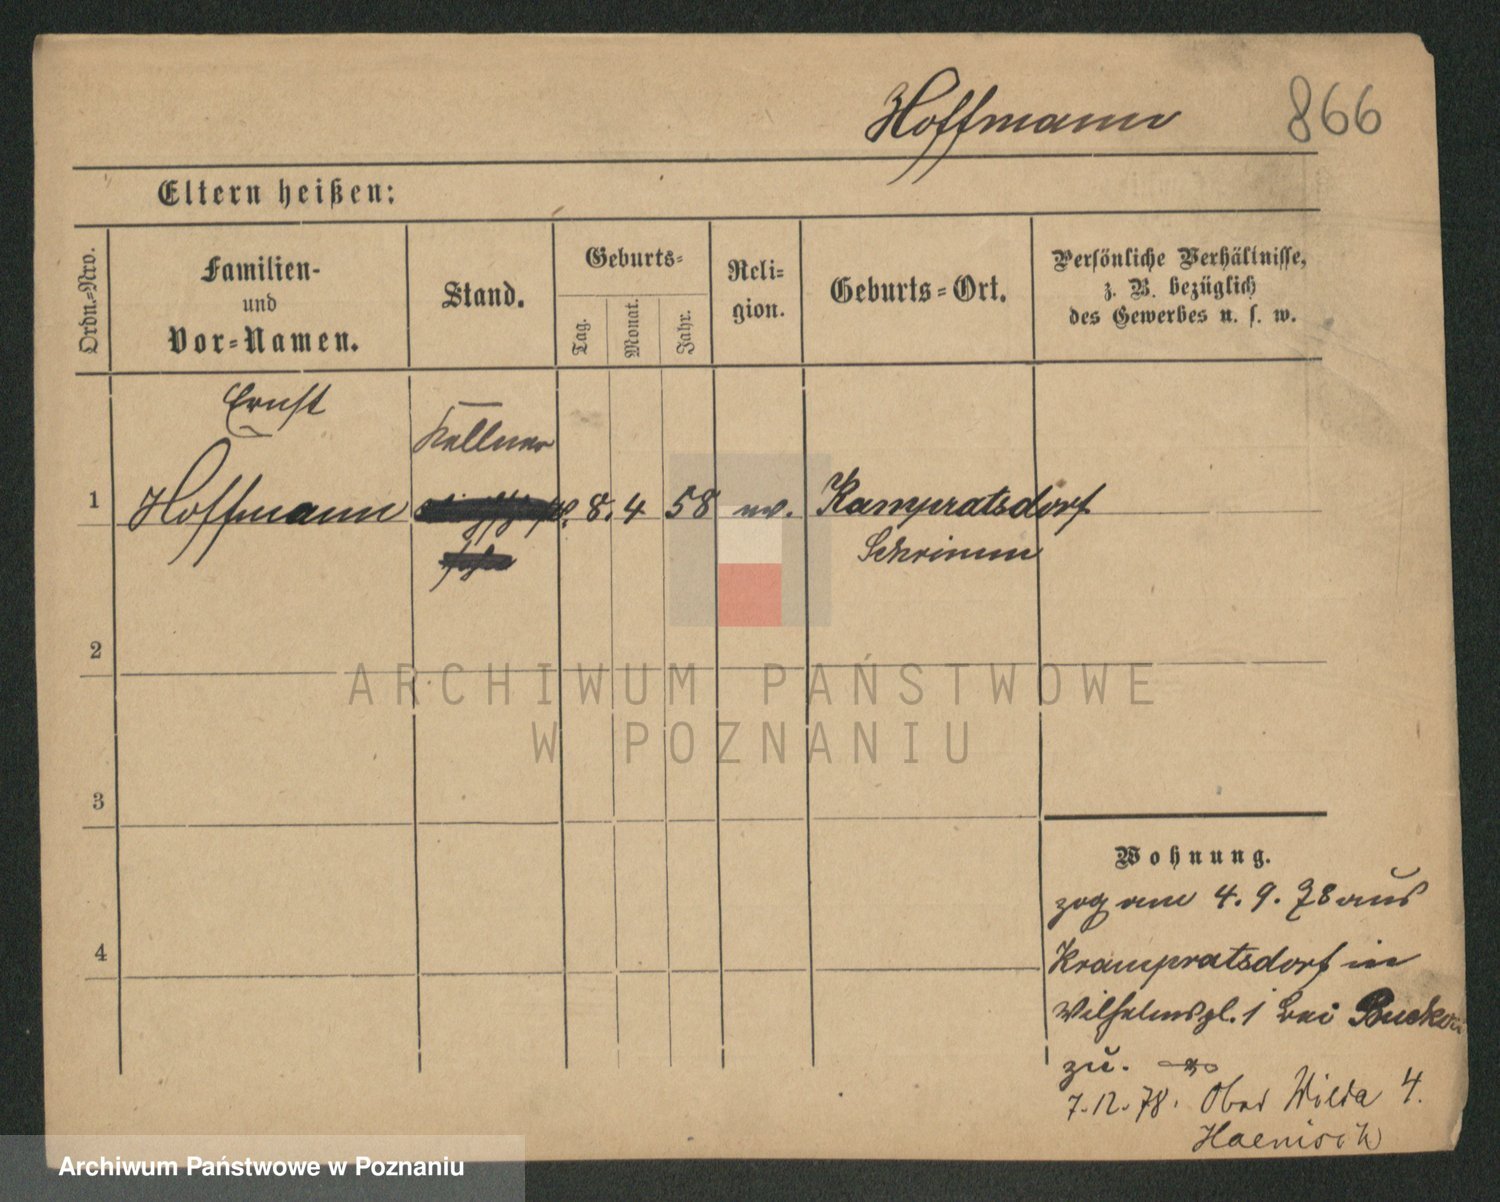 Hoffmann 866
Eltern heißen:
Ordn.=Nro.
Familien-
und
Vor=Namen.
Stand.
Geburts=
Tag.
Monat.
Jahr.
Reli=
gion.
Geburts=Ort.
Persönliche Verhältnisse,
z. B. bezüglich
des Gewerbes u. s. w.
Ernst
Kellner
1 Hoffmann 8. 4 58 ev. Kampratsdorf
Schrimm
2
3
4
Wohnung.
zog am 4. 9. 78 aus
Krampratsdorf in
Wilhelmspl. 1 bei
zu.
7.12.78. Ober Wilda 4.
Haenisch
ARCHIWUM PAŃSTWOWE
W POZNANIU
Archiwum Państwowe w Poznaniu